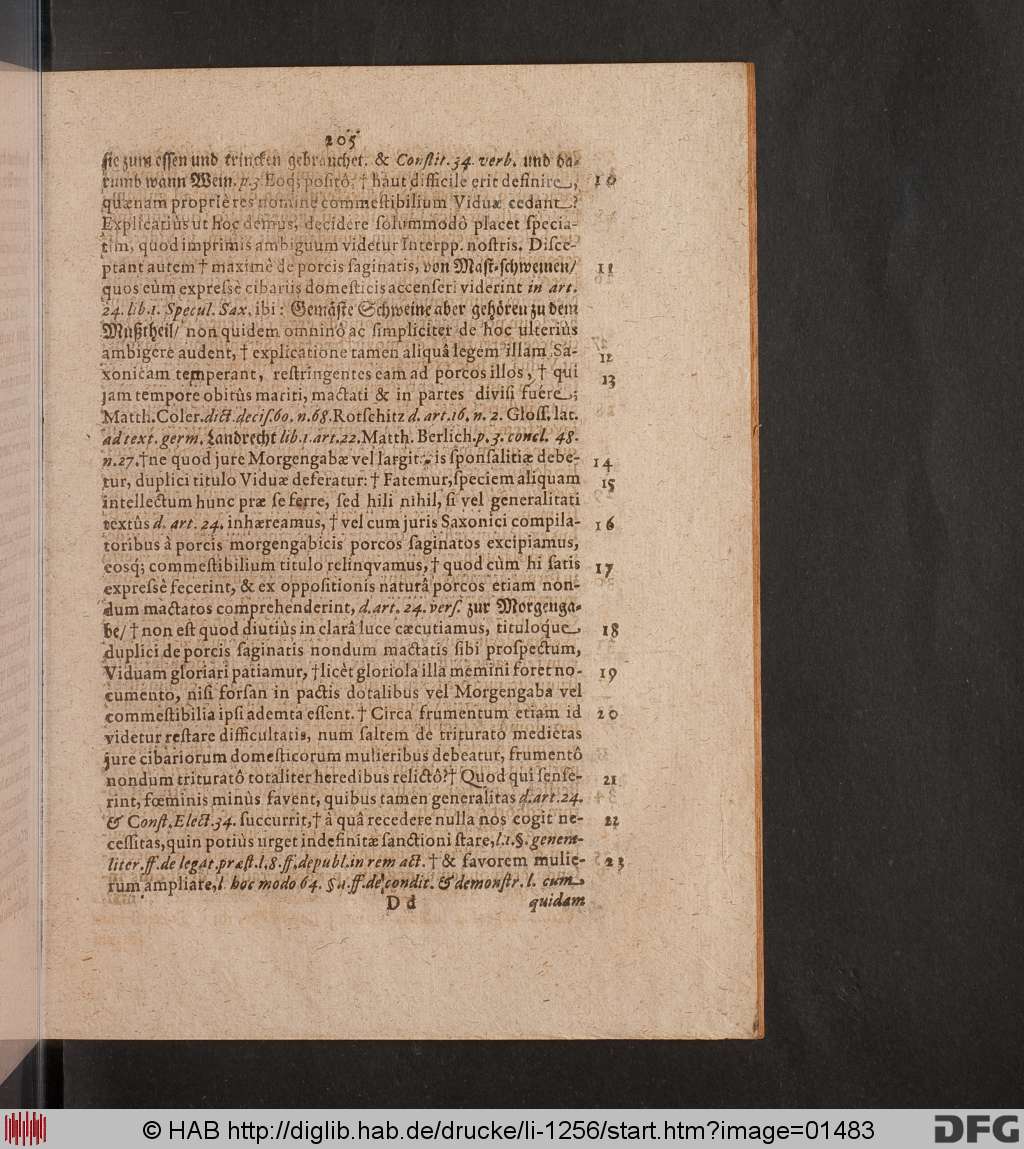 205
sie zum essen und trincken gebrauchet. & Constit. 34. verb. und da-
rumb wann Wein. p. 3 Eoq; positô, † haut difficile erit definire, 10
quænam propriè res nomine commestibilium Viduæ cedant?
Explicariùs ut hoc demus, decidere solummodò placet specia-
tim, quod imprimis ambiguum videtur Interpp. nostris. Disce-
ptant autem † maximè de porcis saginatis, von Mast-schweinen/ 11
quos cùm expressè cibariis domesticis accenseri viderint in art.
24. lib. 1. Specul. Sax. ibi: Gemäste Schweine aber gehören zu dem
Mußtheil/ non quidem omninò ac simpliciter de hoc ulteriùs
ambigere audent, † explicatione tamen aliquâ legem illam Sa- 12
xonicam temperant, restringentes eam ad porcos illos, † qui 13
jam tempore obitûs mariti, mactati & in partes divisi fuére;
Matth. Coler. dict. decis. 60. n. 68. Rotschitz d. art. 16. n. 2. Gloss. lat.
ad text. germ. Landrecht lib. 1. art. 22. Matth. Berlich. p. 3. concl. 48.
n. 27. † ne quod jure Morgengabæ vel largit: is sponsalitiæ debe- 14
tur, duplici titulo Viduæ deferatur: † Fatemur, speciem aliquam 15
intellectum hunc præ se ferre, sed hili nihil, si vel generalitati
textûs d. art. 24. inhæreamus, † vel cum juris Saxonici compila- 16
toribus à porcis morgengabicis porcos saginatos excipiamus,
eosq; commestibilium titulo relinqvamus, † quod cùm hi satis 17
expressè fecerint, & ex oppositionis naturâ porcos etiam non-
dum mactatos comprehenderint, d. art. 24. vers. zur Morgenga-
be/ † non est quod diutiùs in clarâ luce cæcutiamus, tituloque 18
duplici de porcis saginatis nondum mactatis sibi prospectum,
Viduam gloriari patiamur, † licèt gloriola illa memini foret no- 19
cumento, nisi forsan in pactis dotalibus vel Morgengaba vel
commestibilia ipsi ademta essent. † Circa frumentum etiam id 20
videtur restare difficultatis, num saltem de triturato medietas
jure cibariorum domesticorum mulieribus debeatur, frumentô
nondum trituratô totaliter heredibus relictô? † Quod qui sense- 21
rint, fœminis minùs favent, quibus tamen generalitas d. art. 24.
& Const. Elect. 34. succurrit, † à quâ recedere nulla nos cogit ne- 22
cessitas, quin potiùs urget indefinitæ sanctioni stare, l. 1. §. genera-
liter. ff. de legat. præst. l. 8. ff. de publ. in rem act. † & favorem mulie- 23
rum ampliare, l. hoc modo 64. § 1. ff. de condit. & demonstr. l. cum
D d quidam
© HAB http://diglib.hab.de/drucke/li-1256/start.htm?image=01483
DFG